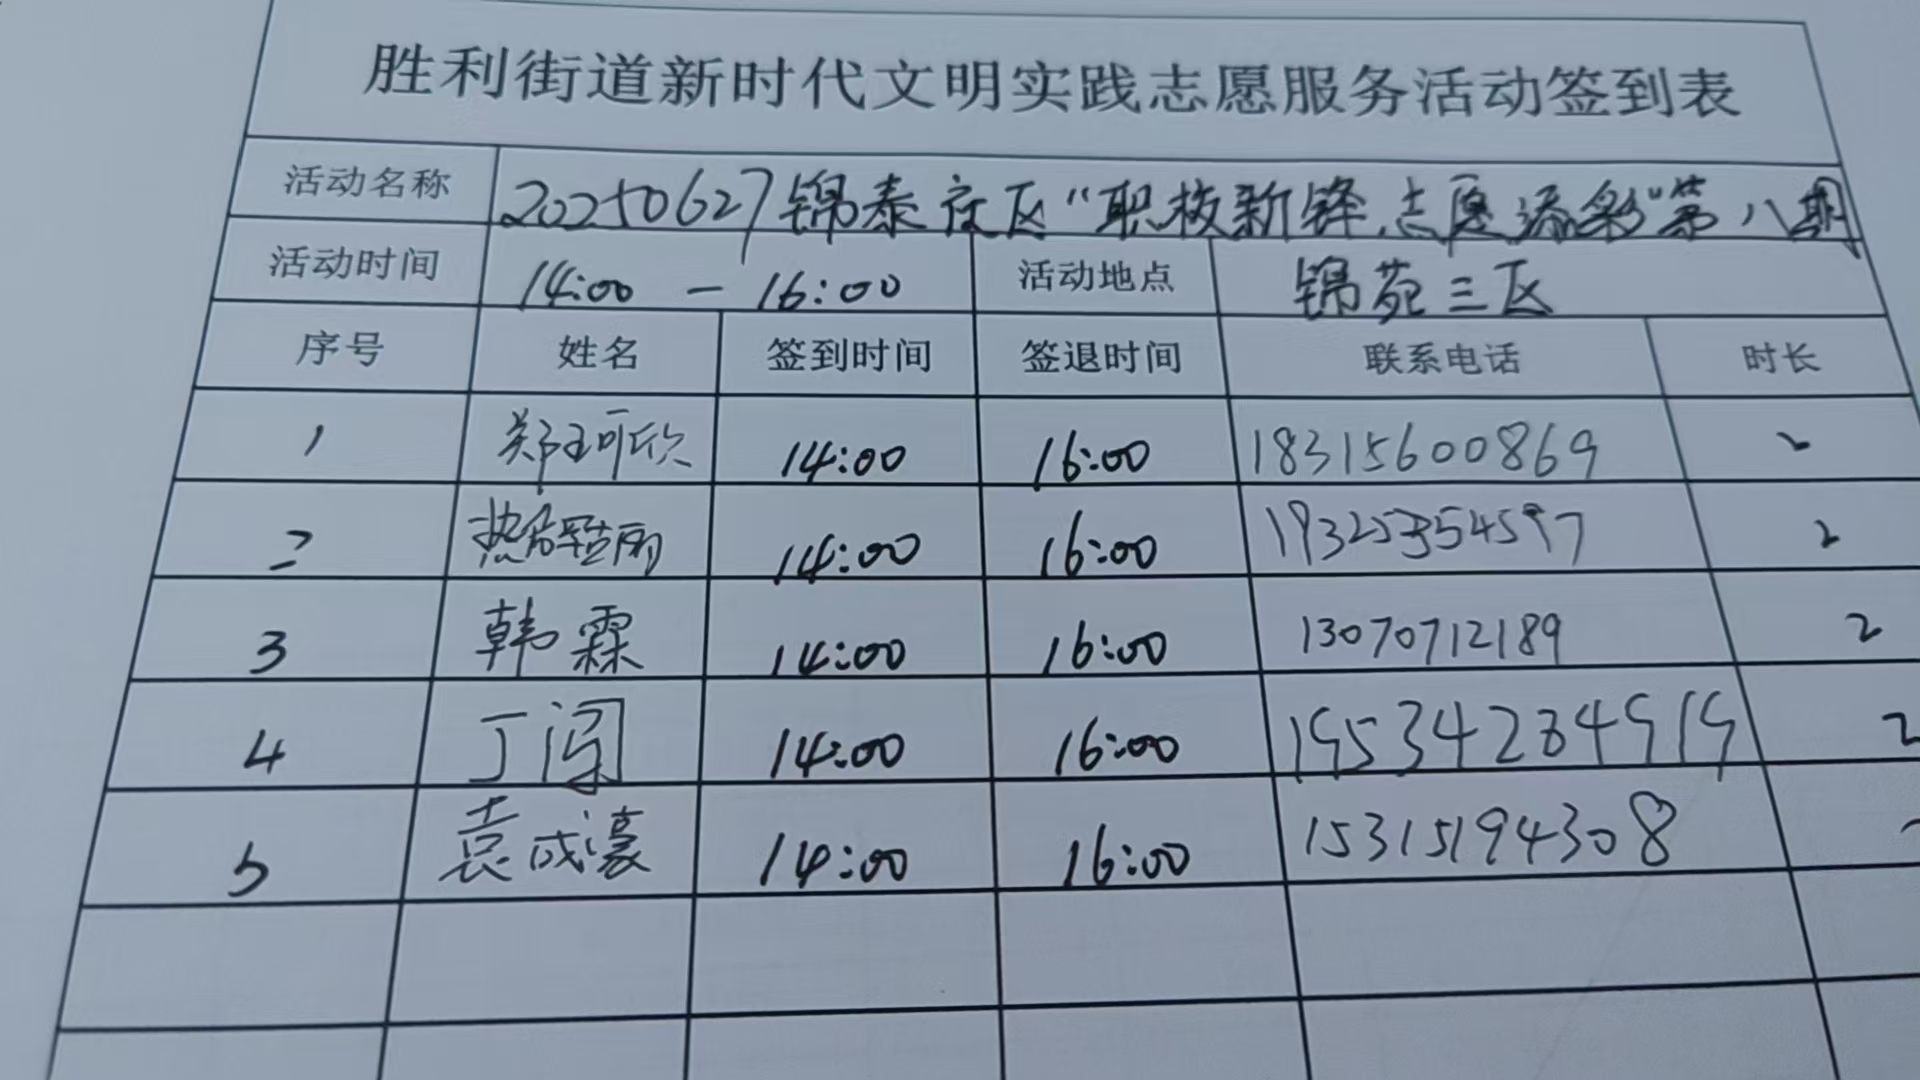 胜利街道新时代文明实践志愿服务活动签到表
活动名称 20250627锦泰社区“职校新锋,志愿添彩”第八期
活动时间 14:00 - 16:00 活动地点 锦苑三区
序号 姓名 签到时间 签退时间 联系电话 时长
1 郑珂欣 14:00 16:00 18315600869 2
2 14:00 16:00 2
3 韩霖 14:00 16:00 13070712189 2
4 丁闯 14:00 16:00 2
5 袁成濠 14:00 16:00 15315194308